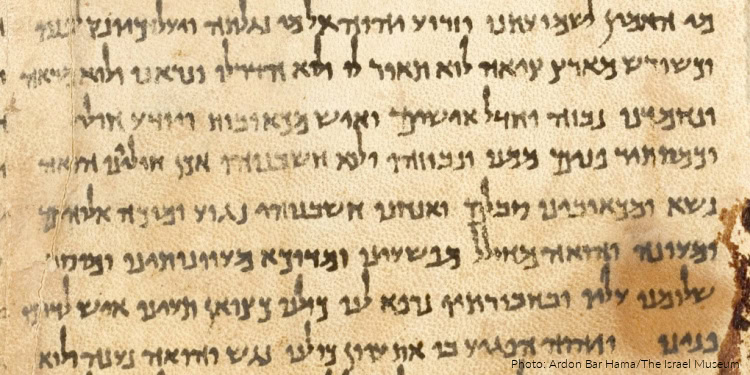 מי האמין לשמועתנו וזרוע יהוה אל מי נגלתה ויעל כיונק לפניו
וכשורש מארץ ציאה לוא תאור לו ולא הדר לו ונראנו ולוא מראה
ונחמדנו נבזה וחדל אישים ואיש מכאובות ויודע חולי
וכמסתיר פנים ממנו ונבוזהו ולוא חשבנוהו אכן חוליינו הואה
נשא ומכאובינו סבלם ואנחנו חשבנוהו נגוע ומוכה אלוהים
ומעונה והואה מחולל מפשעינו ומדוכא מעוונותינו ומוסר
שלומנו עליו ובחבורתיו נרפא לנו כולנו כצואן תעינו איש לדרכו
פנינו ויהוה הפגיע בו את עוון כולנו נגש והואה נענה ולוא
Photo: Ardon Bar Hama/The Israel Museum